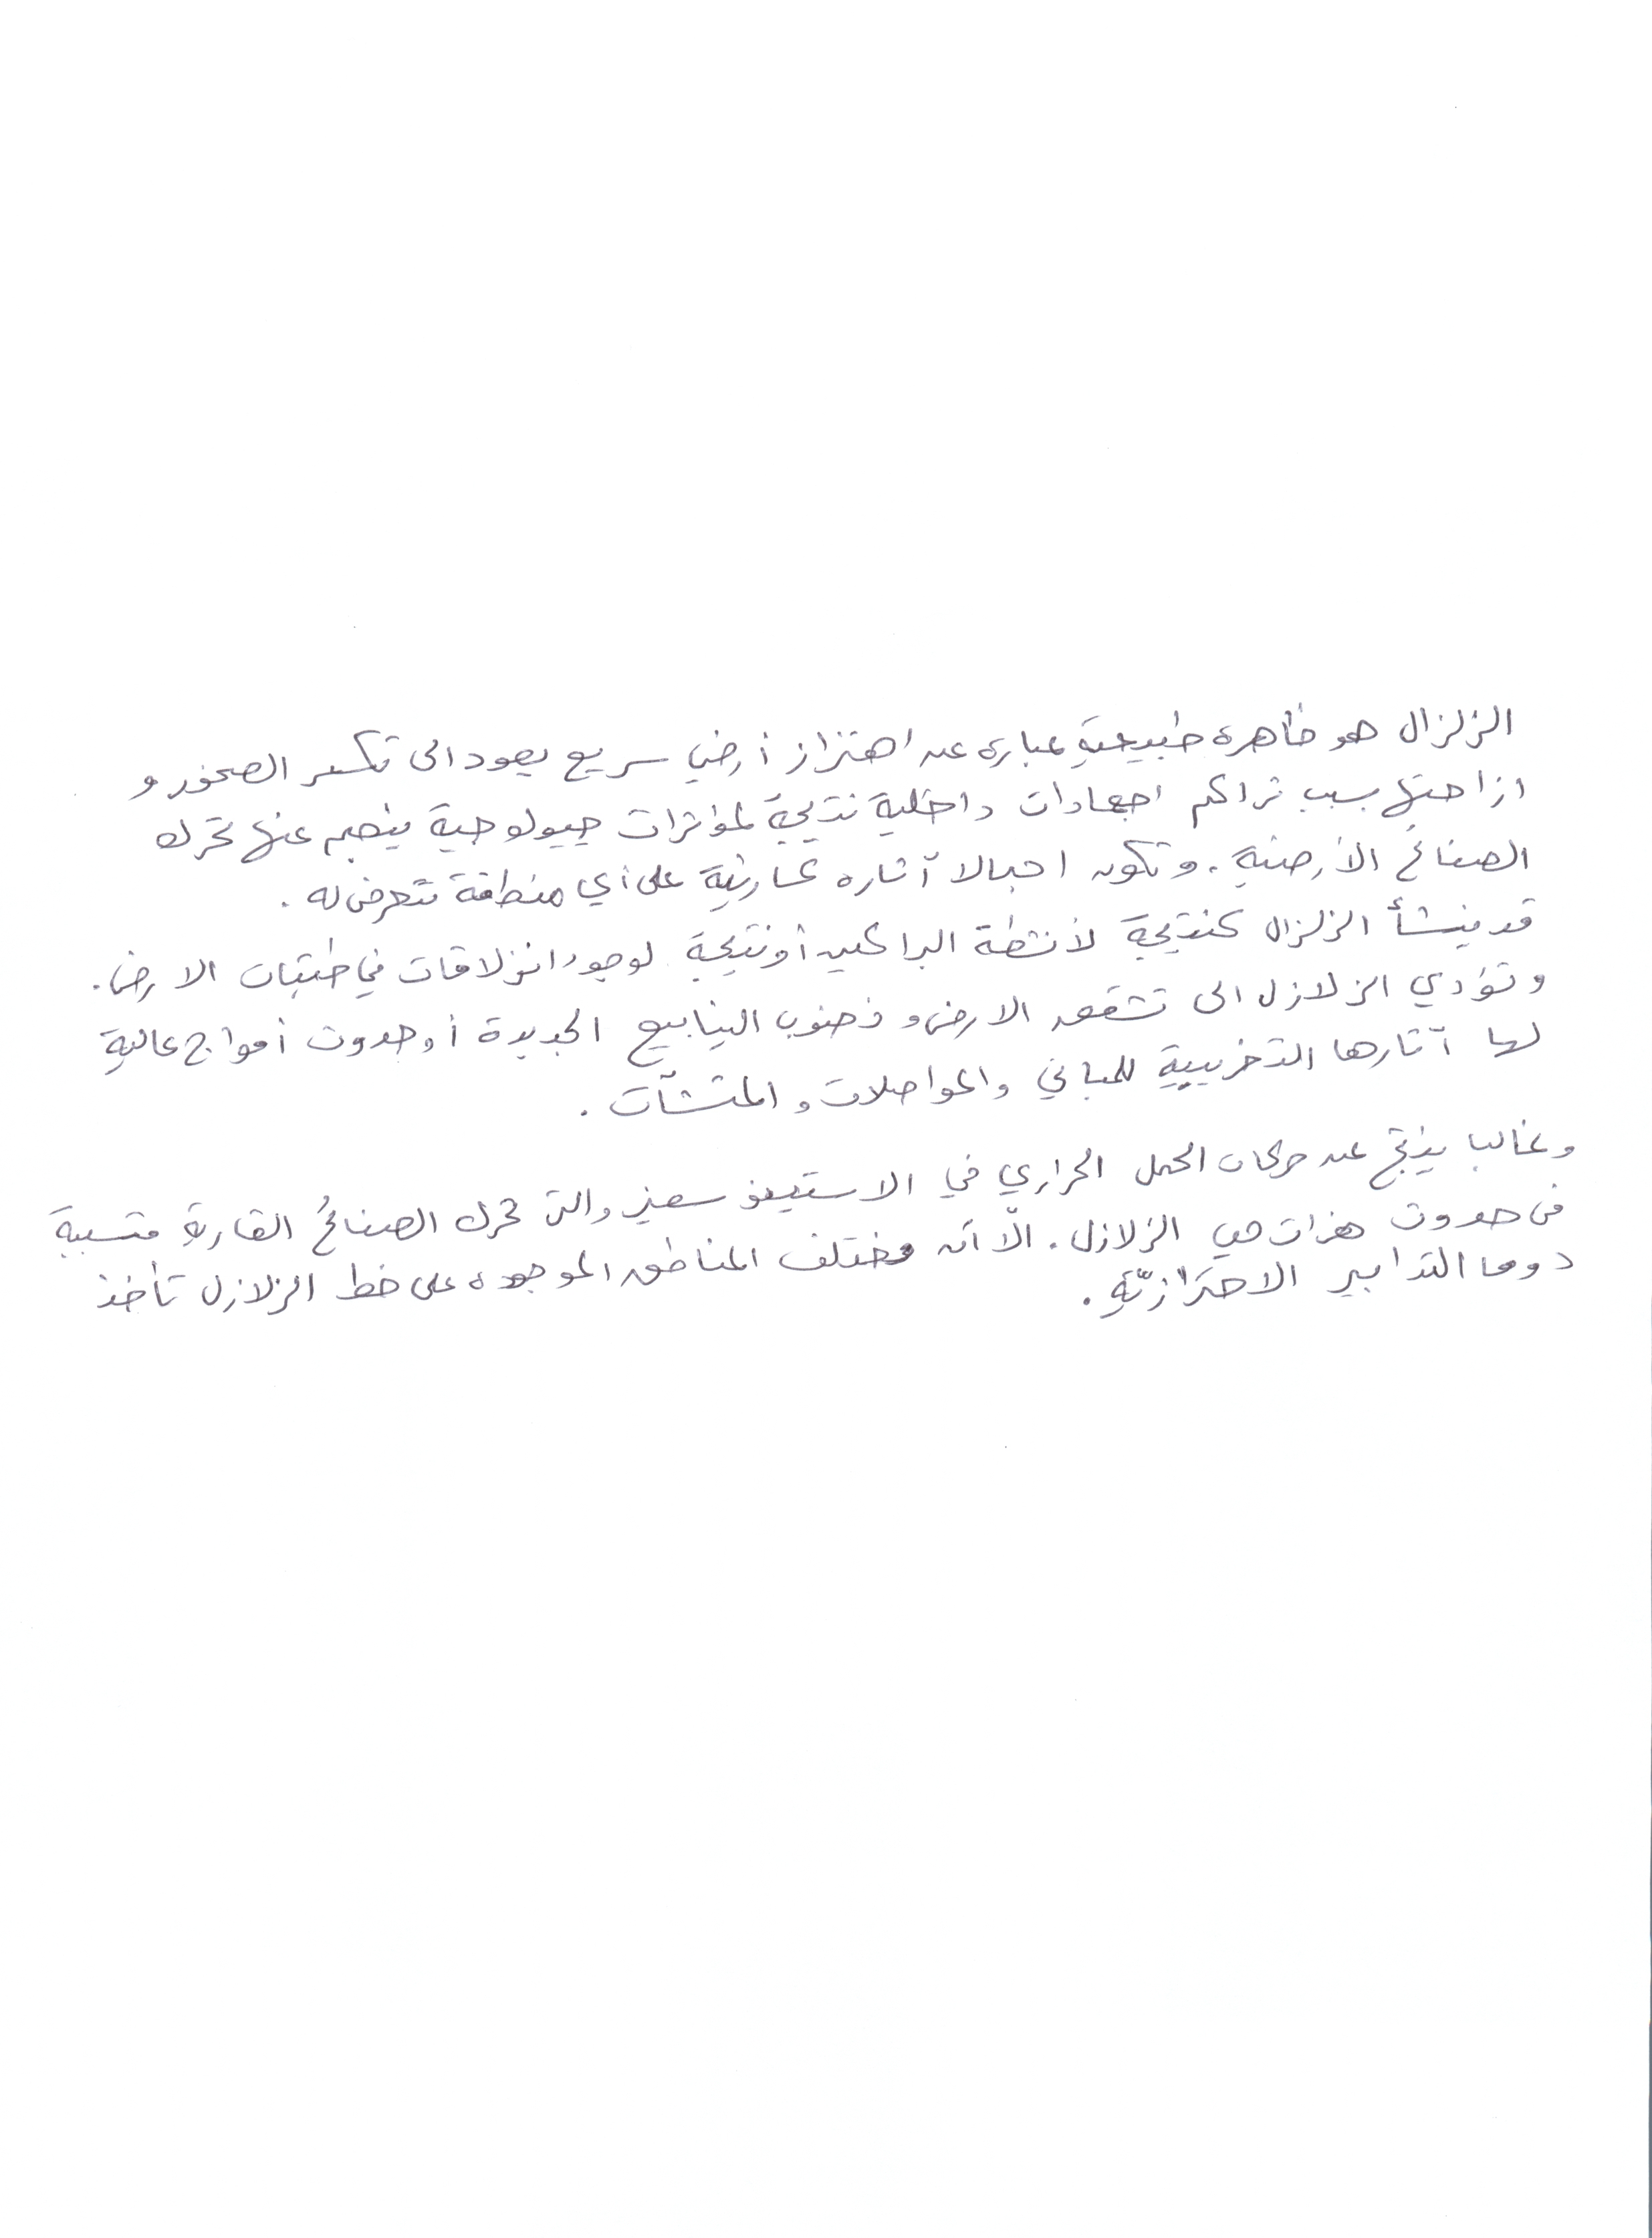 الزلزال هو ظاهرة طبيعية عبارة عن اهتزاز أرضي سريع يعود الى تكسر الصخور و
ازاحتها بسبب تراكم اجهادات داخلية نتيجة لمؤثرات جيولوجية ينجم عنها تحرك
الصفائح الأرضية. وتكون اجمالا آثاره كارثية على أي منطقة تتعرض له.
قد ينشأ الزلزال كنتيجة لأنشطة البراكين أو نتيجة لوجود انزلاقات في طبقات الارض.
وتؤدي الزلازل الى تشقق الارض و نضوب الينابيع الجديدة أو حدوث أمواج عالية
لها آثارها التخريبية للمباني والمواصلات و المنشآت.
وغالبا ينتج عن حركات الحمل الحراري في الاستينوسفير والتي تحرك الصفائح القارية متسببة
في حدوث هزات هي الزلازل. الّا أن مختلف المناطق الموجوده على خط الزلازل تأخذ
دوما التدابير الاحترازيّة.